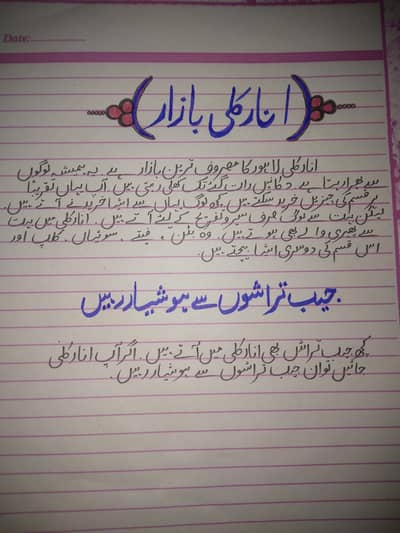 Date:
انارکلی بازار
انارکلی لاہور کا معروف ترین بازار ہے۔ یہ ہمیشہ لوگوں
سے بھرا رہتا ہے۔ دکانیں رات گئے تک کھلی رہتی ہیں۔ آپ یہاں تقریباً
ہر قسم کی چیزیں خرید سکتے ہیں۔ کچھ لوگ یہاں سے اشیا خریدنے آتے ہیں۔
لیکن بہت سے لوگ صرف سیر و تفریح کے لئے آتے ہیں۔ انارکلی میں بہت
سے پھیری والے بھی ہوتے ہیں۔ وہ بٹن، فیتے، سوئیاں، کلپ اور
اس قسم کی دوسری اشیا بیچتے ہیں۔
جیب تراشوں سے ہوشیار رہیں
کچھ جیب تراش بھی انارکلی میں آتے ہیں۔ اگر آپ انارکلی
جائیں تو ان جیب تراشوں سے ہوشیار رہیں۔